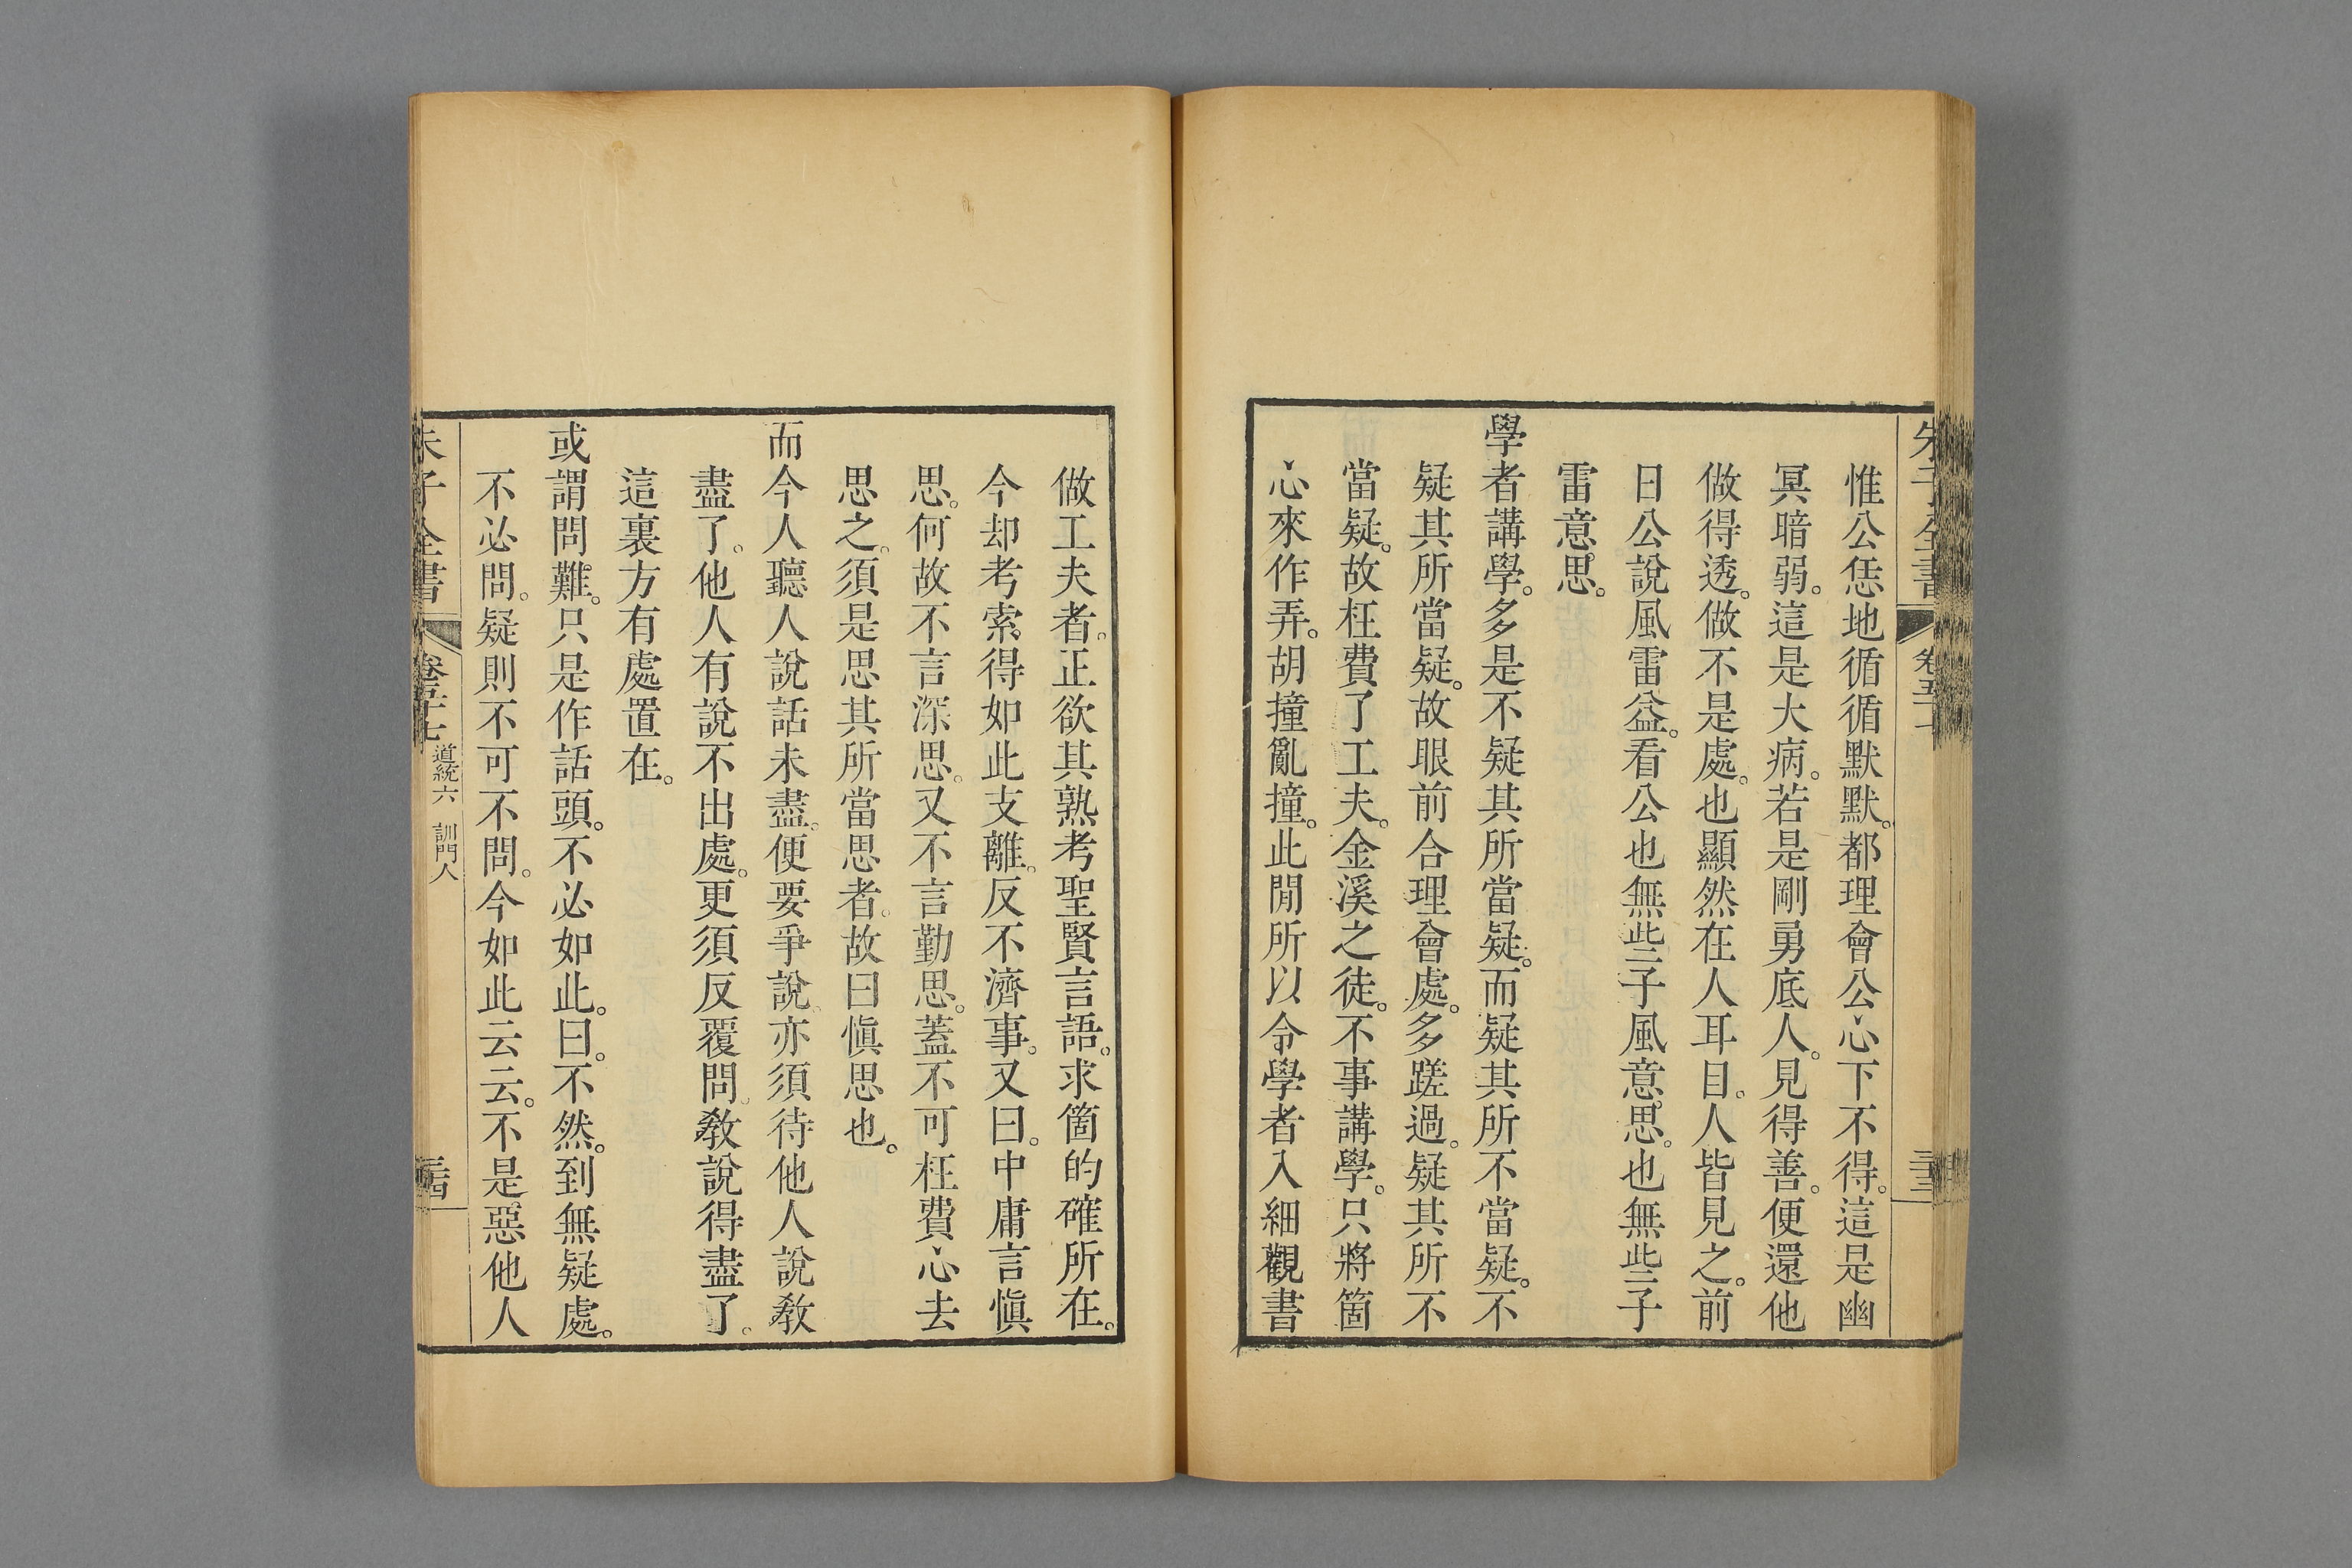 朱子全書 卷五十七 三十三
惟公恁地循循默默。都理會公心下不得。這是幽
冥暗弱。這是大病。若是剛勇底人。見得善。便還他
做得透。做不是處。也顯然在人耳目。人皆見之。前
日公說風雷益。看公也無些子風意思。也無些子
雷意思。
學者講學。多是不疑其所當疑。而疑其所不當疑。不
疑其所當疑。故眼前合理會處。多蹉過。疑其所不
當疑。故枉費了工夫。金溪之徒。不事講學。只將箇
心來作弄。胡撞亂撞。此閒所以令學者入細觀書
做工夫者。正欲其熟考聖賢言語。求箇的確所在。
今却考索。得如此支離。反不濟事。又曰。中庸言愼
思。何故不言深思。又不言勤思。蓋不可枉費心去
思之。須是思其所當思者。故曰愼思也。
而今人聽人說話未盡。便要爭說。亦須待他人說教
盡了。他人有說不出處。更須反覆問。教說得盡了。
這裏方有處置在。
或謂問難。只是作話頭。不必如此。曰。不然。到無疑處。
不必問。疑則不可不問。今如此云云。不是惡他人
朱子全書 卷五十七 道統六 訓門人 三十四